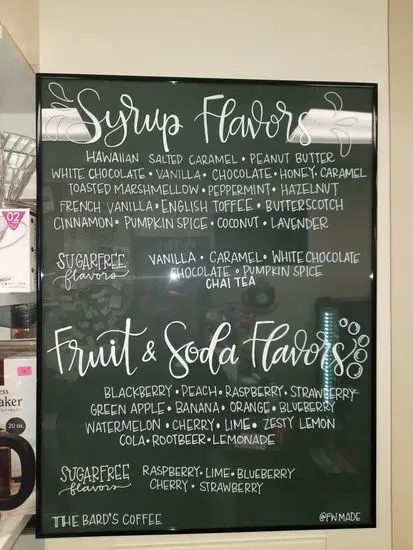 Syrup Flavors
HAWAIIAN SALTED CARAMEL • PEANUT BUTTER
WHITE CHOCOLATE • VANILLA • CHOCOLATE • HONEY • CARAMEL
TOASTED MARSHMELLOW • PEPPERMINT • HAZELNUT
FRENCH VANILLA • ENGLISH TOFFEE • BUTTERSCOTCH
CINNAMON • PUMPKIN SPICE • COCONUT • LAVENDER
SUGARFREE flavors
VANILLA • CARAMEL • WHITE CHOCOLATE
CHOCOLATE • PUMPKIN SPICE
CHAI TEA
Fruit & Soda Flavors
BLACKBERRY • PEACH • RASPBERRY • STRAWBERRY
GREEN APPLE • BANANA • ORANGE • BLUEBERRY
WATERMELON • CHERRY • LIME • ZESTY LEMON
COLA • ROOTBEER • LEMONADE
SUGARFREE flavors
RASPBERRY • LIME • BLUEBERRY
CHERRY • STRAWBERRY
THE BARD'S COFFEE
@FW.MADE
02
ess
aker
20 oz.